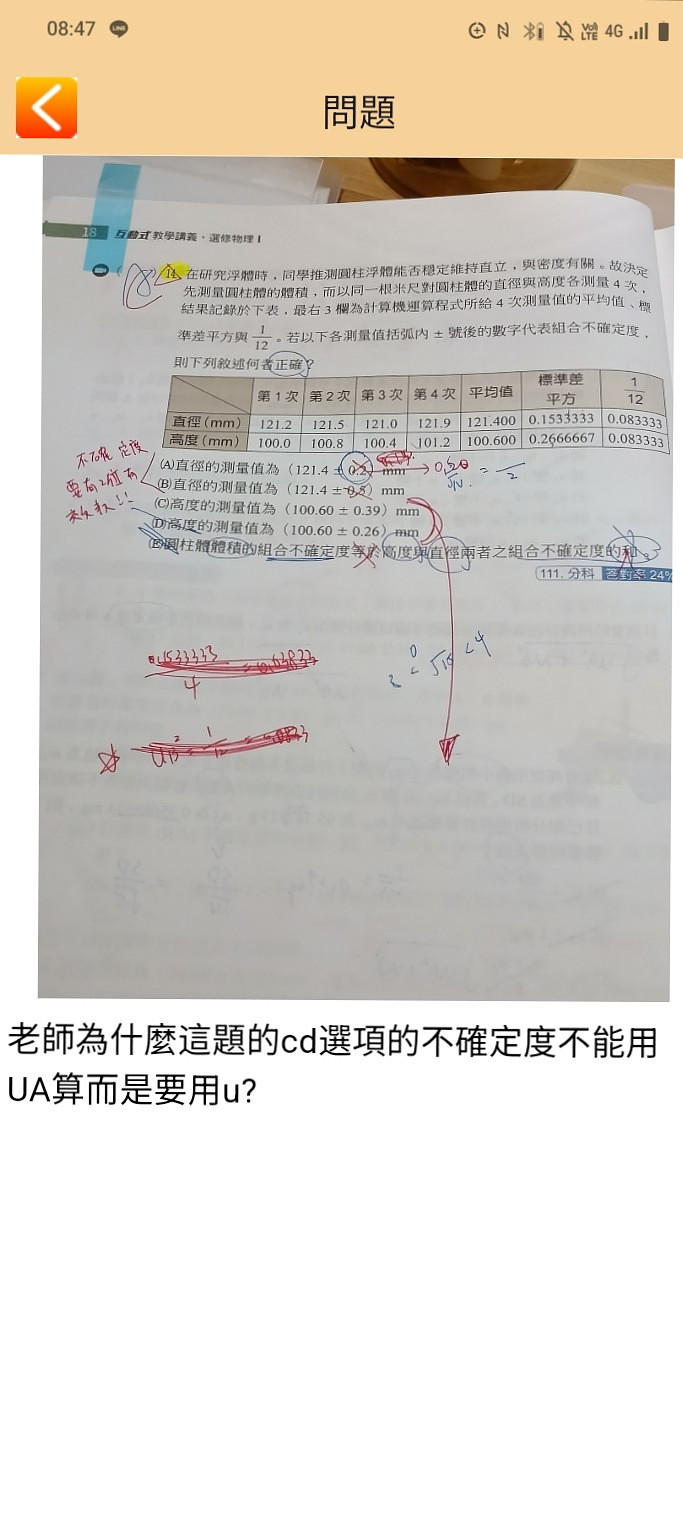 08:47
LINE
VoLTE 4G
問題
18 互動式教學講義・選修物理 I
14. 在研究浮體時，同學推測圓柱浮體能否穩定維持直立，與密度有關。故決定
先測量圓柱體的體積，而以同一根米尺對圓柱體的直徑與高度各測量 4 次，
結果記錄於下表，最右 3 欄為計算機運算程式所給 4 次測量值的平均值、標
準差平方與 1/12。若以下各測量值括弧內 ± 號後的數字代表組合不確定度，
則下列敘述何者正確？
第 1 次 第 2 次 第 3 次 第 4 次 平均值 標準差平方 1/12
直徑（mm） 121.2 121.5 121.0 121.9 121.400 0.1533333 0.083333
高度（mm） 100.0 100.8 100.4 101.2 100.600 0.2666667 0.083333
不確定度
要有2位有
效數!!
(A)直徑的測量值為（121.4 ± 0.2） mm
(B)直徑的測量值為（121.4 ± 0.5）mm
(C)高度的測量值為（100.60 ± 0.39）mm
(D)高度的測量值為（100.60 ± 0.26）mm
(E)圓柱體體積的組合不確定度等於高度與直徑兩者之組合不確定度的和
111. 分科 答對率 24%
0.1533333
4
老師為什麼這題的cd選項的不確定度不能用
UA算而是要用u?